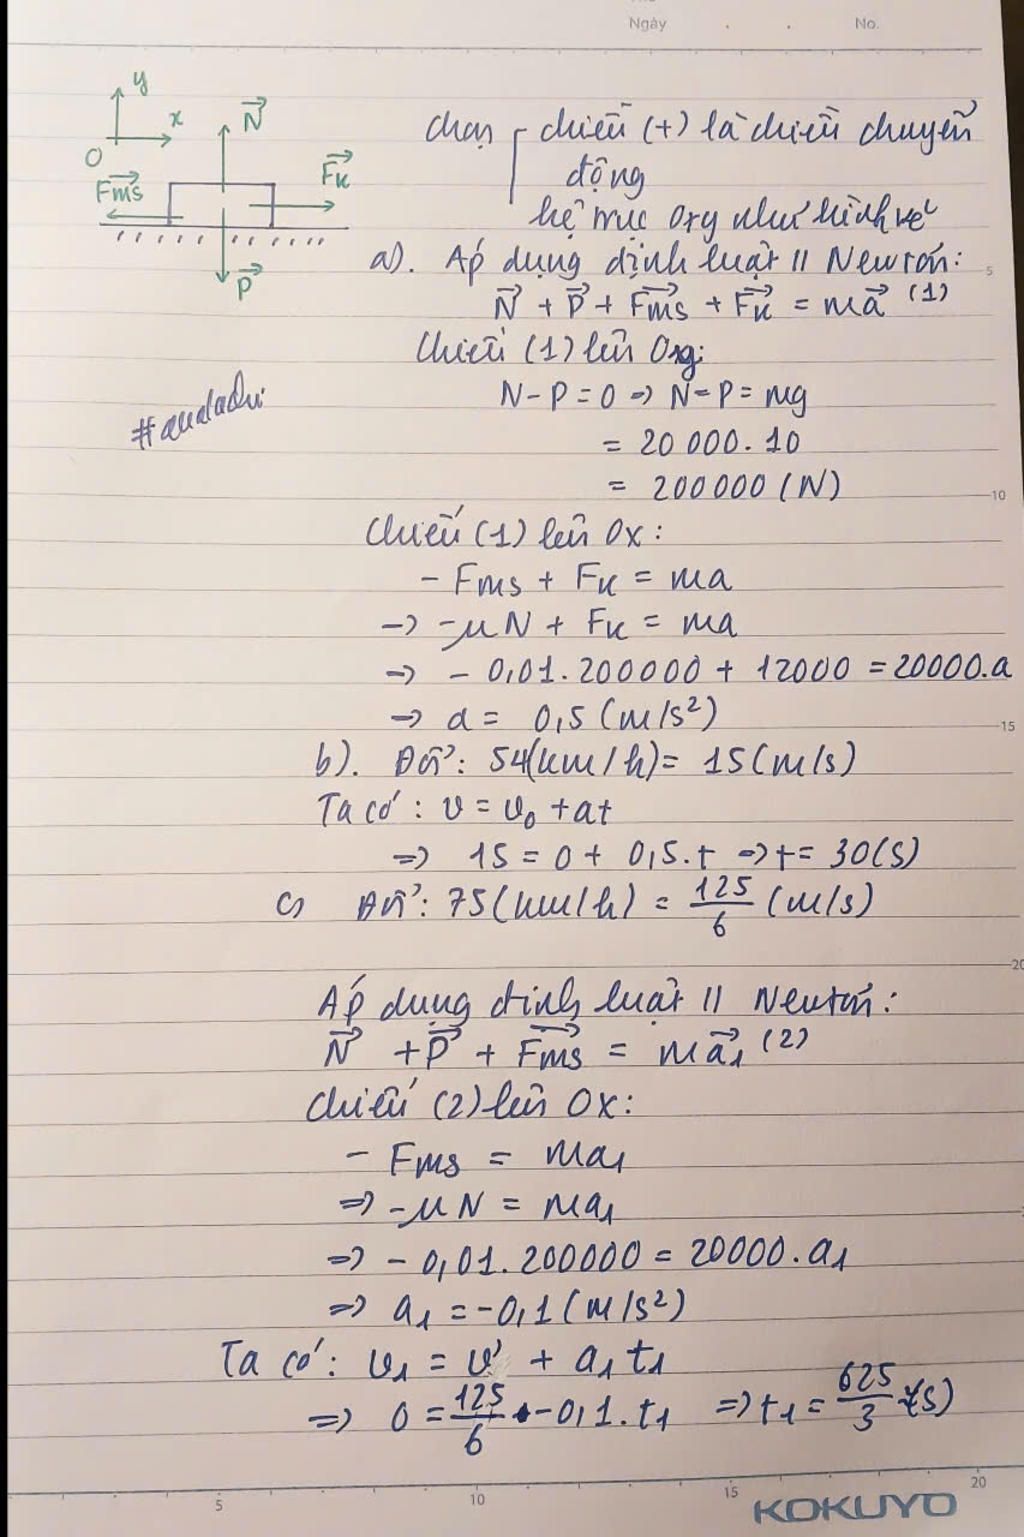 Ngày . . No.
y
x
O
N
Fms
Fk
P
chọn chiều (+) là chiều chuyển
động
hệ trục Oxy như hình vẽ
a). Áp dụng định luật II Newton:
N + P + Fms + Fk = ma (1)
Chiếu (1) lên Oy:
N - P = 0 => N = P = mg
= 20 000. 10
= 200000 (N)
Chiếu (1) lên Ox:
- Fms + Fk = ma
-> -μN + Fk = ma
=> - 0,01. 200000 + 12000 = 20000.a
=> a = 0,5 (m/s²)
b). Đổi: 54(km/h) = 15(m/s)
Ta có: v = v₀ + at
=> 15 = 0 + 0,5.t => t = 30(s)
c) Đổi: 75(km/h) = 125/6 (m/s)
Áp dụng định luật II Newton:
N + P + Fms = ma₁ (2)
Chiếu (2) lên Ox:
- Fms = ma₁
=> -μN = ma₁
=> - 0,01. 200000 = 20000. a₁
=> a₁ = -0,1 (m/s²)
Ta có: v₁ = v' + a₁t₁
=> 0 = 125/6 + -0,1. t₁ => t₁ = 625/3 (s)
5
10
15
20
5 10 15 20
KOKUYO